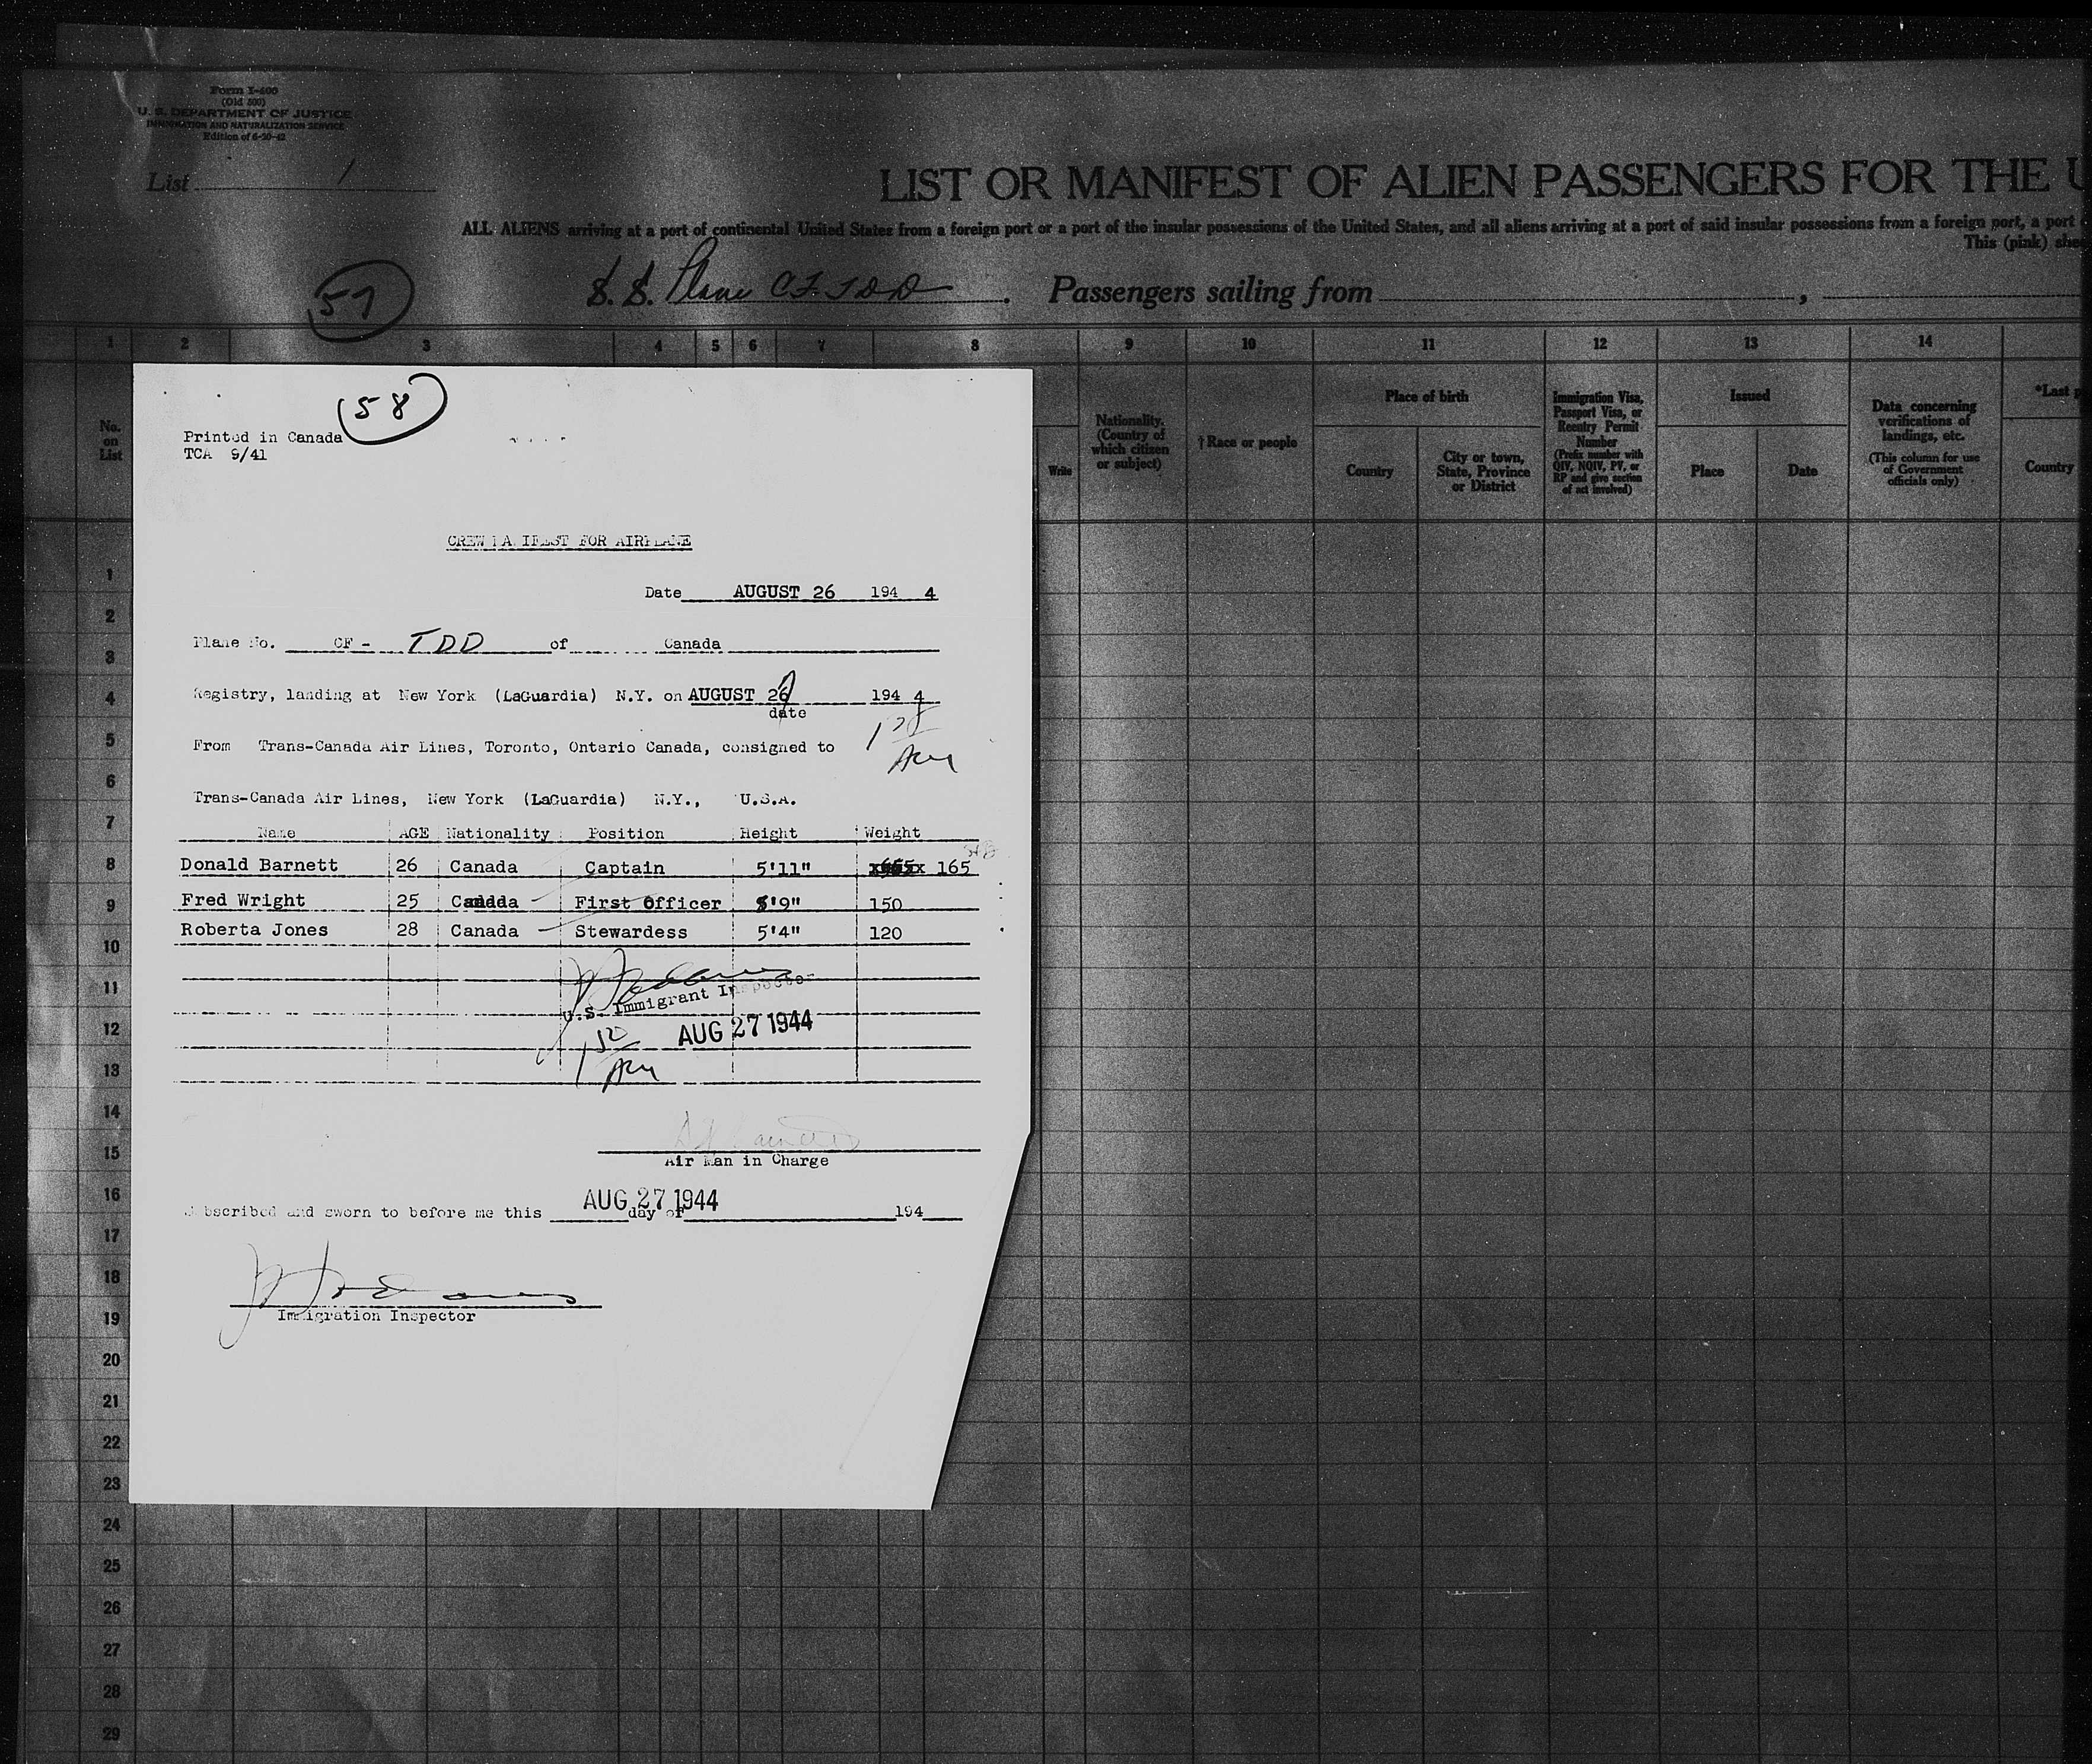 Form I-400
(Old 500)
U. S. DEPARTMENT OF JUSTICE
IMMIGRATION AND NATURALIZATION SERVICE
Edition of 6-20-42
List 1
LIST OR MANIFEST OF ALIEN PASSENGERS FOR THE U
ALL ALIENS arriving at a port of continental United States from a foreign port or a part of the insular possessions of the United States, and all aliens arriving at a port of said insular possessions from a foreign port, a port
This (pink) shee
57
S. S. Plane CF-TDD . Passengers sailing from ,
1 2 3 4 5 6 7 8 9 10 11 12 13 14
No. on List
Write
Nationality. (Country of which citizen or subject)
† Race or people
Place of birth
Country
City or town, State, Province or District
Immigration Visa, Passport Visa, or Reentry Permit Number
(Prefix number with QIV, NQIV, PV, or RP and give section of act involved)
Issued
Place
Date
Data concerning verifications of landings, etc.
(This column for use of Government officials only)
*Last p
Country
58
Printed in Canada
TCA 9/41
CREW MANIFEST FOR AIRPLANE
Date AUGUST 26 194 4
Plane No. CF - TDD of Canada
Registry, landing at New York (LaGuardia) N.Y. on AUGUST 26 194 4
date
From Trans-Canada Air Lines, Toronto, Ontario Canada, consigned to
AM
Trans-Canada Air Lines, New York (LaGuardia) N.Y., U.S.A.
Name AGE Nationality Position Height Weight
Donald Barnett 26 Canada Captain 5'11" 165
Fred Wright 25 Canada First Officer 5'9" 150
Roberta Jones 28 Canada Stewardess 5'4" 120
U.S. Immigrant Inspector
AUG 27 1944
AM
Air Man in Charge
AUG 27 1944
Subscribed and sworn to before me this day of 194
Immigration Inspector
1
2
3
4
5
6
7
8
9
10
11
12
13
14
15
16
17
18
19
20
21
22
23
24
25
26
27
28
29